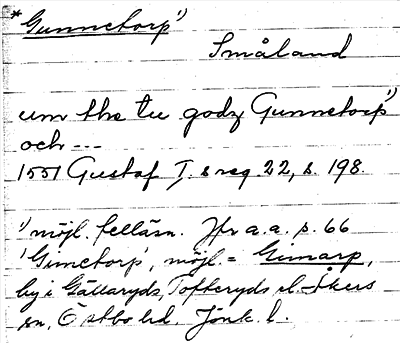 *Gunnetorp¹)
Småland
um the tu godz Gunnetorp¹)
och ---
1551 Gustaf I.s reg. 22, s. 198.
¹) möjl. felläsn. Jfr a.a. s. 66
'Gimetorp', möjl. = Gimarp,
by i Gällaryds, Tofteryds el. Åkers
sn, Östbo hd. Jönk. l.